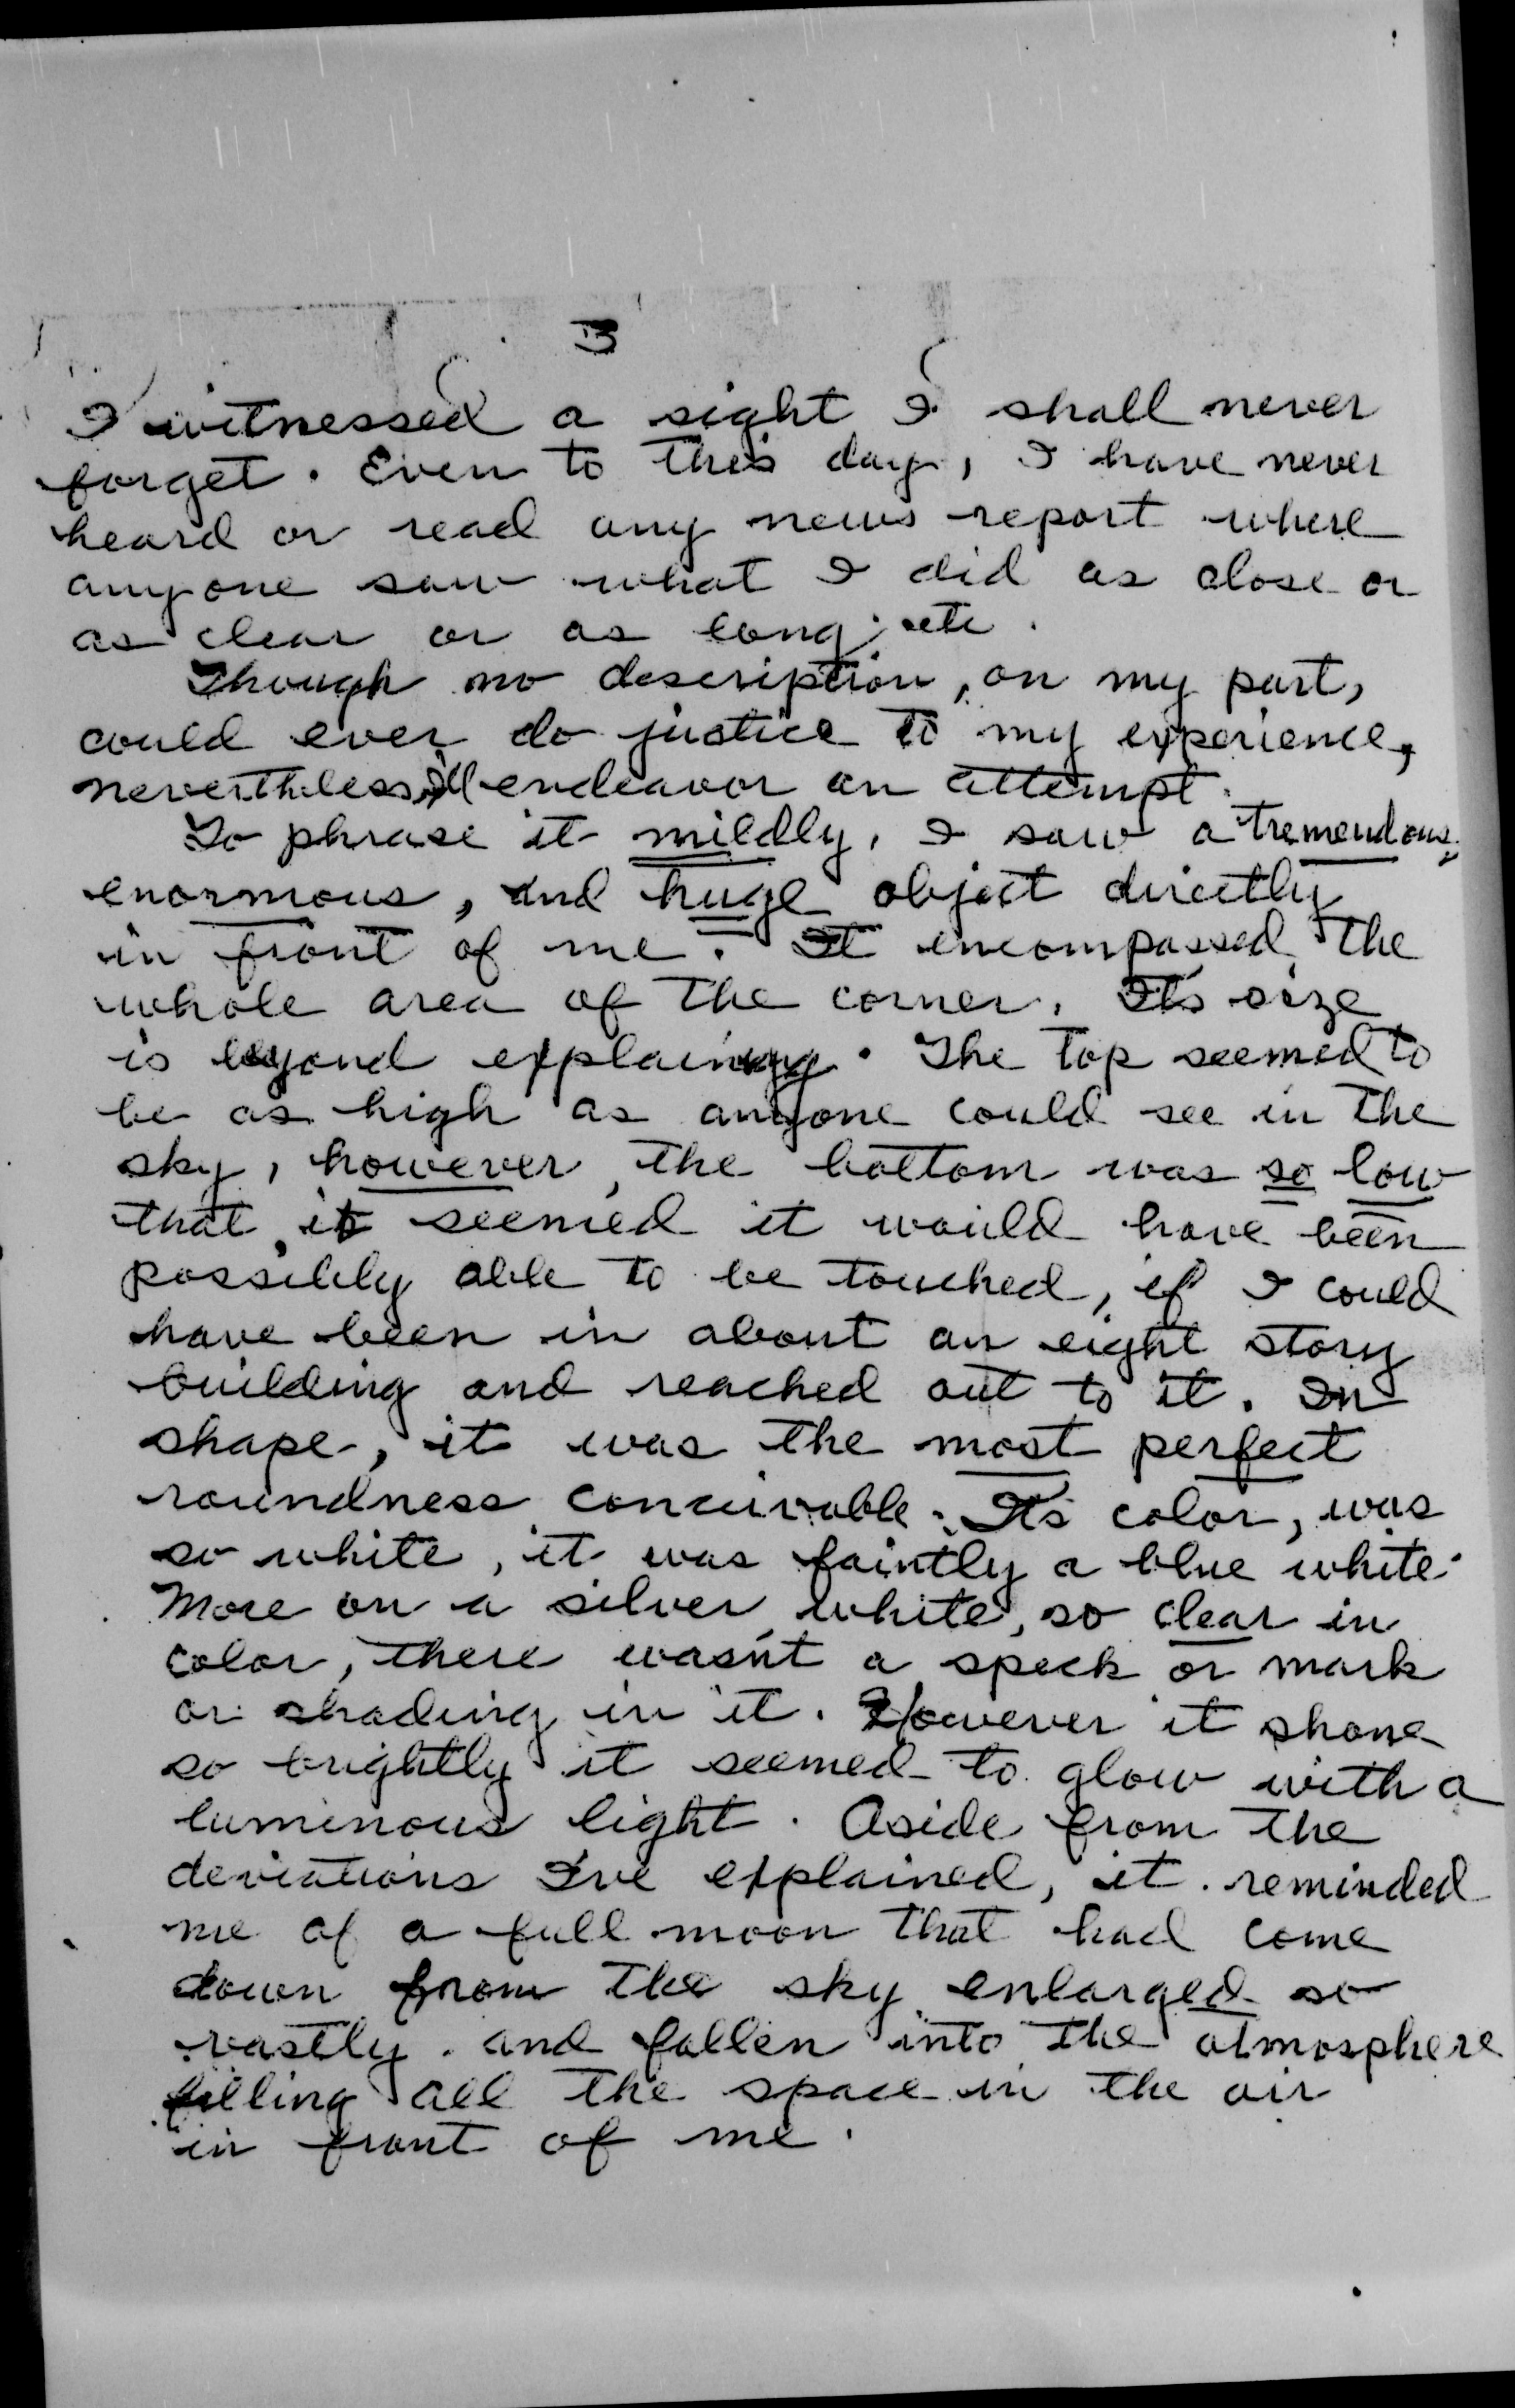 3
I witnessed a sight I shall never
forget. Even to this day, I have never
heard or read any news report where
anyone saw what I did as close or
as clear or as long; etc.
Though no description, on my part,
could ever do justice to my experience,
nevertheless, I'll endeavor an attempt.
To phrase it mildly, I saw a tremendous,
enormous, and huge object directly
in front of me. It encompassed the
whole area of the corner. Its size
is beyond explaining. The top seemed to
be as high as anyone could see in the
sky, however, the bottom was so low
that, it seemed it would have been
possibly able to be touched, if I could
have been in about an eight story
building and reached out to it. In
shape, it was the most perfect
roundness conceivable. Its color, was
so white, it was faintly a blue white.
More on a silver white, so clear in
color, there wasn't a speck or mark
or shading in it. However it shone
so brightly it seemed to glow with a
luminous light. Aside from the
deviations I've explained, it reminded
me of a full moon that had come
down from the sky enlarged so
vastly and fallen into the atmosphere
filling all the space in the air
in front of me.